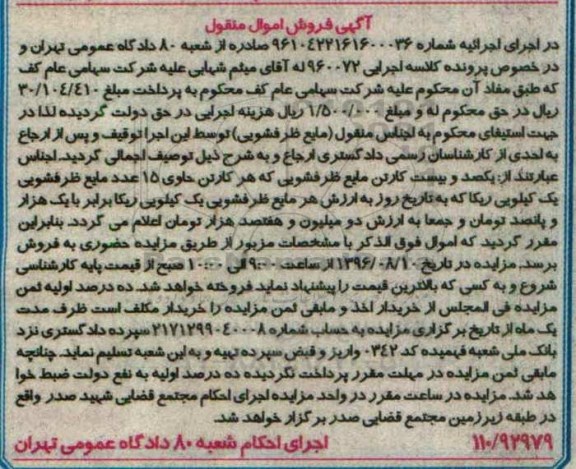 آگهی فروش اموال منقول
در اجرای اجرائیه شماره ۹۶۱۰۴۲۲۱۶۱۶۰۰۰۳۶ صادره از شعبه ۸۰ دادگاه عمومی تهران و
در خصوص پرونده کلاسه اجرایی ۹۶۰۰۷۲ له آقای میثم شهابی علیه شرکت سهامی عام کف
که طبق مفاد آن محکوم علیه شرکت سهامی عام کف محکوم به پرداخت مبلغ ۳۰/۱۰۴/۴۱۰
ریال در حق محکوم له و مبلغ ۱/۵۰۰/۱۰۰ ریال هزینه اجرایی در حق دولت گردیده لذا در
جهت استیفای محکوم به اجناس منقول (مایع ظرفشویی) توسط این اجرا توقیف و پس از ارجاع
به احدی از کارشناسان رسمی دادگستری ارجاع و به شرح ذیل توصیف اجمالی گردید. اجناس
عبارتند از: یکصد و بیست کارتن مایع ظرفشویی که هر کارتن حاوی ۱۵ عدد مایع ظرفشویی
یک کیلویی ریکا که به تاریخ روز به ارزش هر مایع ظرفشویی یک کیلویی ریکا برابر با یک هزار
و پانصد تومان و جمعا به ارزش دو میلیون و هفتصد هزار تومان اعلام می گردد. بنابراین
مقرر گردید که اموال فوق الذکر با مشخصات مزبور از طریق مزایده حضوری به فروش
برسد. مزایده در تاریخ ۱۳۹۶/۰۸/۱۰ از ساعت ۹:۰۰ الی ۱۰:۰۰ صبح از قیمت پایه کارشناسی
شروع و به کسی که بالاترین قیمت را پیشنهاد نماید فروخته خواهد شد. ده درصد اولیه ثمن
مزایده فی المجلس از خریدار اخذ و مابقی ثمن مزایده را خریدار مکلف است ظرف مدت
یک ماه از تاریخ برگزاری مزایده به حساب شماره ۲۱۷۱۲۹۹۰۴۰۰۰۸ سپرده دادگستری نزد
بانک ملی شعبه فهمیده کد ۰۳۴۲ واریز و قبض سپرده تهیه و به این شعبه تسلیم نماید. چنانچه
مابقی ثمن مزایده در مهلت مقرر پرداخت نگردیده ده درصد اولیه به نفع دولت ضبط خوا
هد شد. مزایده در ساعت مقرر در واحد مزایده اجرای احکام مجتمع قضایی شهید صدر واقع
در طبقه زیرزمین مجتمع قضایی صدر برگزار خواهد شد.
۱۱۰/۹۲۹۷۹ اجرای احکام شعبه ۸۰ دادگاه عمومی تهران